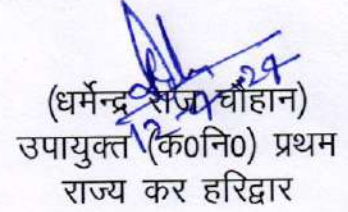 (धर्मेन्द्र राज चौहान)
उपायुक्त (क0नि0) प्रथम
राज्य कर हरिद्वार